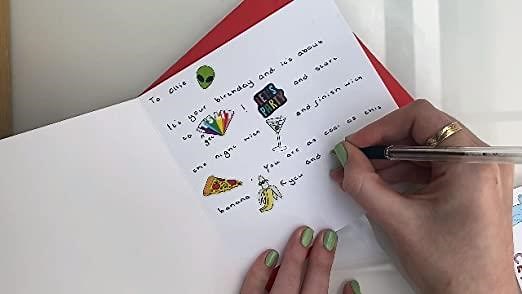 To Allie
It's your birthday and it's about
to get ! LET'S PARTY and start
the night with and finish with
. You are as cool as this
banana & you and